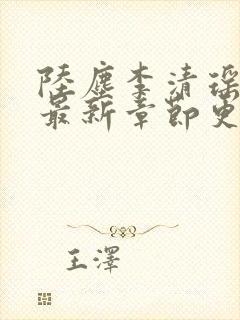 陸塵李清瑤
最新章節更
王澤